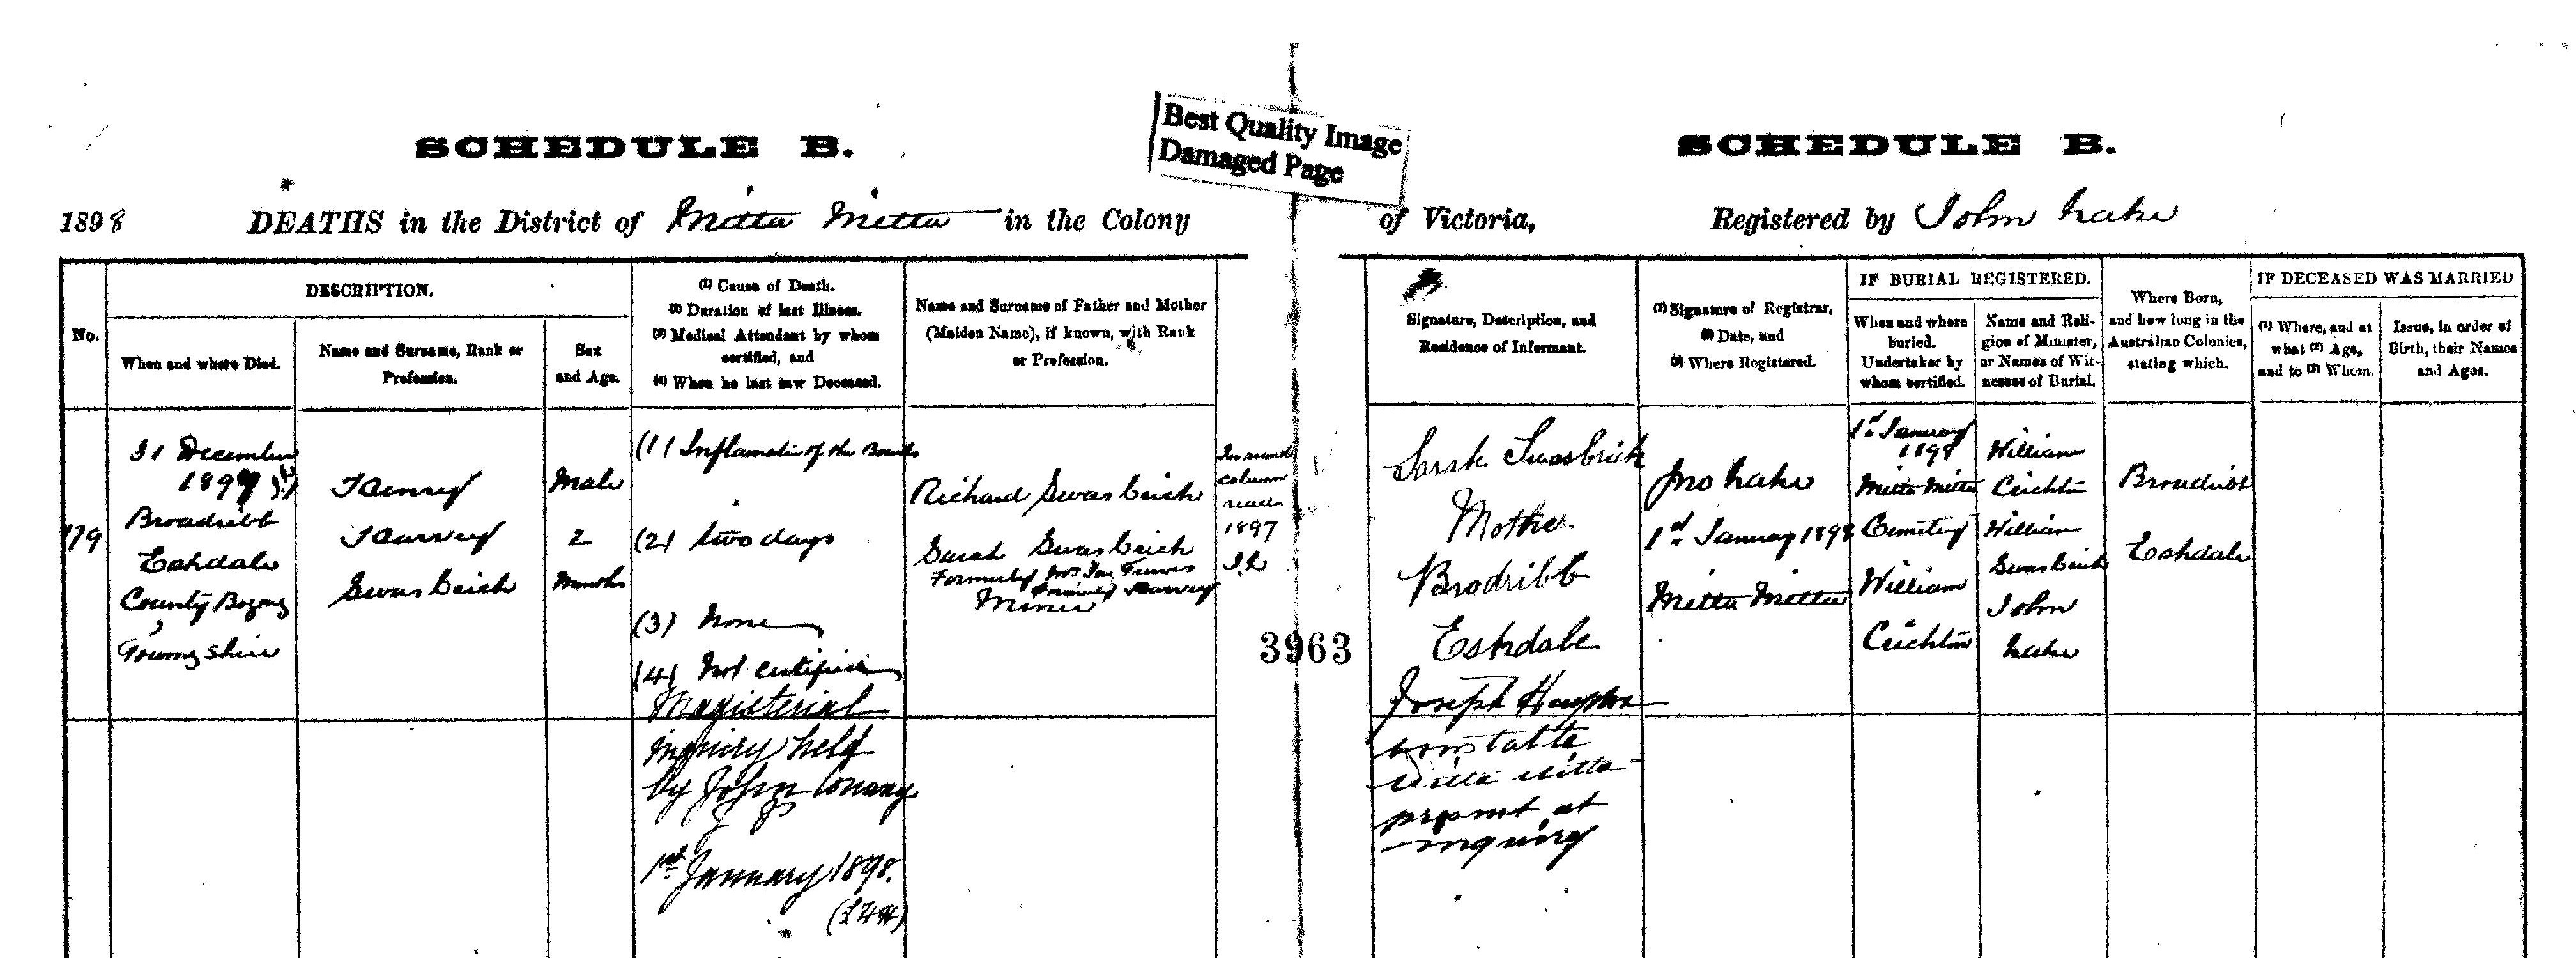 Best Quality Image
Damaged Page
SCHEDULE B.
SCHEDULE B.
1898 DEATHS in the District of Mitta Mitta in the Colony of Victoria, Registered by John
No.
DESCRIPTION.
When and where Died.
Name and Surname, Rank or
Profession.
Sex
and Age.
(1) Cause of Death.
(2) Duration of last Illness.
(3) Medical Attendant by whom
certified, and
(4) When he last saw Deceased.
Name and Surname of Father and Mother
(Maiden Name), if known, with Rank
or Profession.
Signature, Description, and
Residence of Informant.
(1) Signature of Registrar,
(2) Date, and
(3) Where Registered.
IF BURIAL REGISTERED.
When and where
buried.
Undertaker by
whom certified.
Name and Reli-
gion of Minister,
or Names of Wit-
nesses of Burial.
Where Born,
and how long in the
Australian Colonies,
stating which.
IF DECEASED WAS MARRIED
(1) Where, and at
what (2) Age,
and to (3) Whom.
Issue, in order of
Birth, their Names
and Ages.
179
31 December
1897
Broadribb
Eskdale
County Bogong
Towong Shire
Henry
Harvey
Swasbrick
Male
2
Months
(1) Inflamation of the Bowels
(2) two days
(3) None
(4) Not certified
Magisterial
inquiry held
by John
JP
1st January 1898.
Richard Swasbrick
Sarah Swasbrick
Formerly
Formerly Harvey
Miner
In second
column
read
1897
3963
Sarah Swasbrick
Mother
Brodribb
Eskdale
Joseph
constable
Mitta Mitta
present at
inquiry
Jno
1st January 1898
Mitta Mitta
1st January
1898
Mitta Mitta
Cemetery
William
Crichton
William
Crichton
William
Swasbrick
John
Broadribb
Eskdale